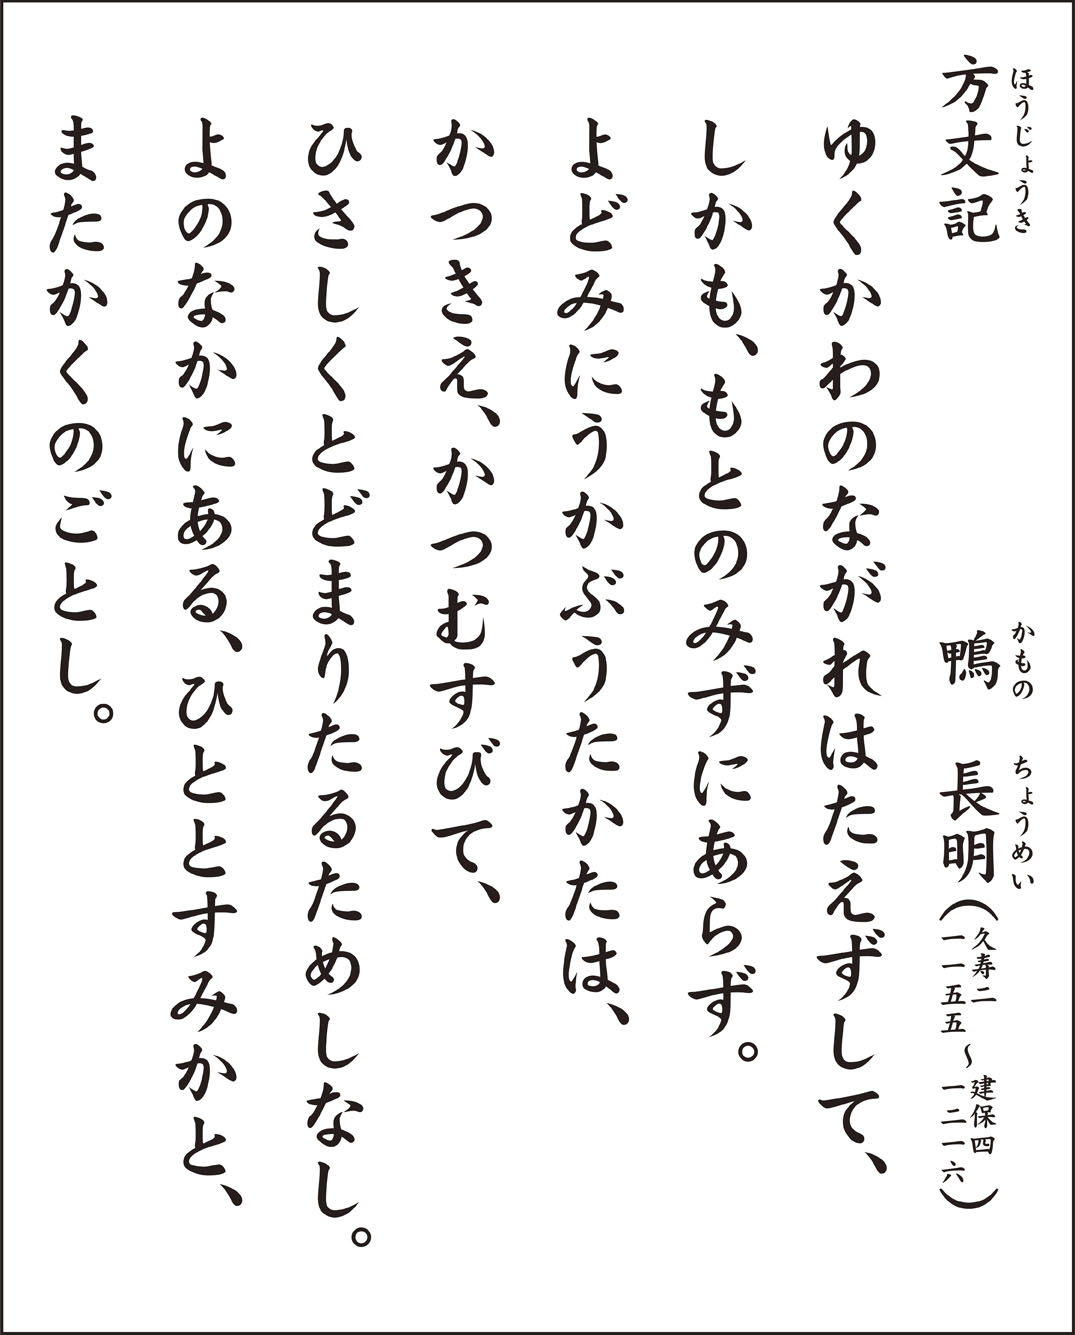 方丈記 鴨 長明(久寿二 一一五五 〜 建保四 一二一六)
ほうじょうき かもの ちょうめい
ゆくかわのながれはたえずして、
しかも、もとのみずにあらず。
よどみにうかぶうたかたは、
かつきえ、かつむすびて、
ひさしくとどまりたるためしなし。
よのなかにある、ひととすみかと、
またかくのごとし。